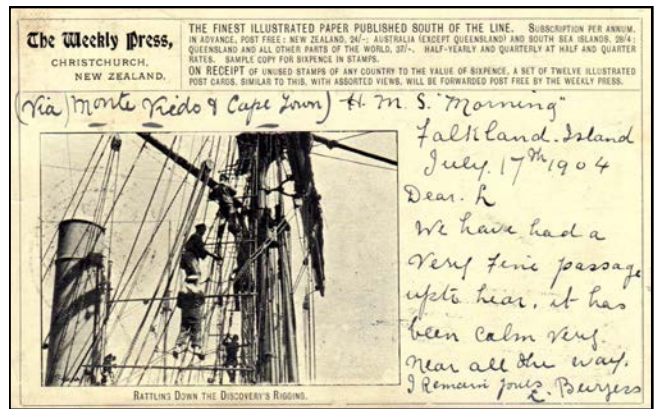 The Weekly Press,
CHRISTCHURCH,
NEW ZEALAND.
THE FINEST ILLUSTRATED PAPER PUBLISHED SOUTH OF THE LINE. SUBSCRIPTION PER ANNUM.
IN ADVANCE, POST FREE: NEW ZEALAND, 24/-; AUSTRALIA (EXCEPT QUEENSLAND) AND SOUTH SEA ISLANDS, 28/4;
QUEENSLAND AND ALL OTHER PARTS OF THE WORLD, 37/-. HALF-YEARLY AND QUARTERLY AT HALF AND QUARTER
RATES. SAMPLE COPY FOR SIXPENCE IN STAMPS.
ON RECEIPT OF UNUSED STAMPS OF ANY COUNTRY TO THE VALUE OF SIXPENCE, A SET OF TWELVE ILLUSTRATED
POST CARDS, SIMILAR TO THIS, WITH ASSORTED VIEWS, WILL BE FORWARDED POST FREE BY THE WEEKLY PRESS.
(Via Monte Viedo & Cape Town) H. M. S. "Morning"
Falkland. Island
July. 17th 1904
Dear.
We have had a
very fine passage
upto hear, it has
been calm very.
near all the way.
I Remain yours
L. Burgess
RATTLING DOWN THE DISCOVERY'S RIGGING.